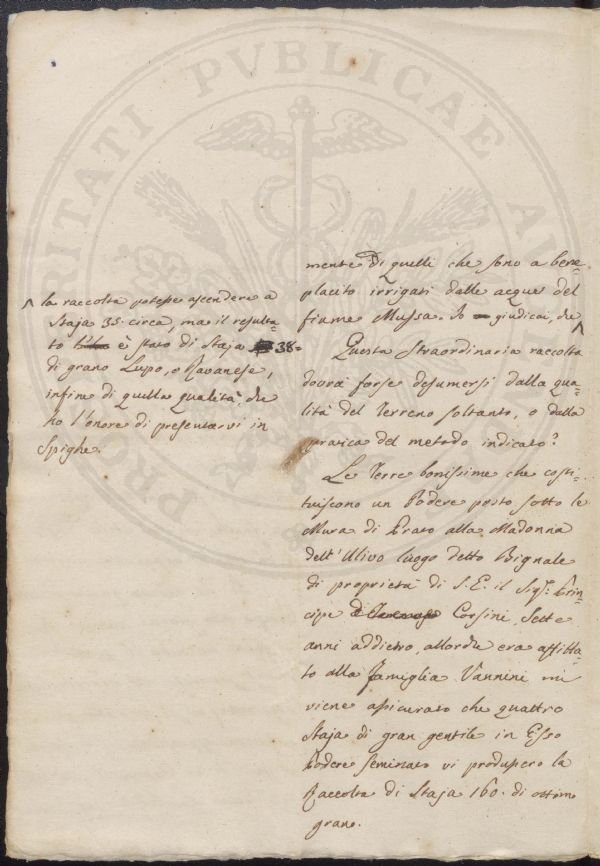 PROSPERITATI PVBLICAE AVGENDAE
mente Di quelli che sono a bene=
placito irrigati dalle acque del
fiume Mussa. Io giudicai, che ^
^ la raccolta potesse ascendere a
Staja 35. circa, ma il resulta=
to è stato di Staja 38=
di grano Lupo, o Ravanese,
infine di quella qualità che
ho l'onore di presentarvi in
Spighe.
Questa Straordinaria raccolta
dovrà forse desumersi dalla qua=
lità del Terreno soltanto, o dalla
pratica del metodo indicato?
Le Terre bonissime che costi=
tuiscono un Podere posto sotto le
Mura di Prato alla Madonna
dell'Ulivo luogo detto Bignale
di proprietà di S. E. il Sigr. Prin=
cipe Corsini, Sette
anni addietro, allorchè era affitta=
to alla famiglia Vannini mi
viene assicurato che quattro
Staja di gran gentile in Esso
Podere seminato vi produssero la
Raccolta di Staja 160. di ottimo
grano.